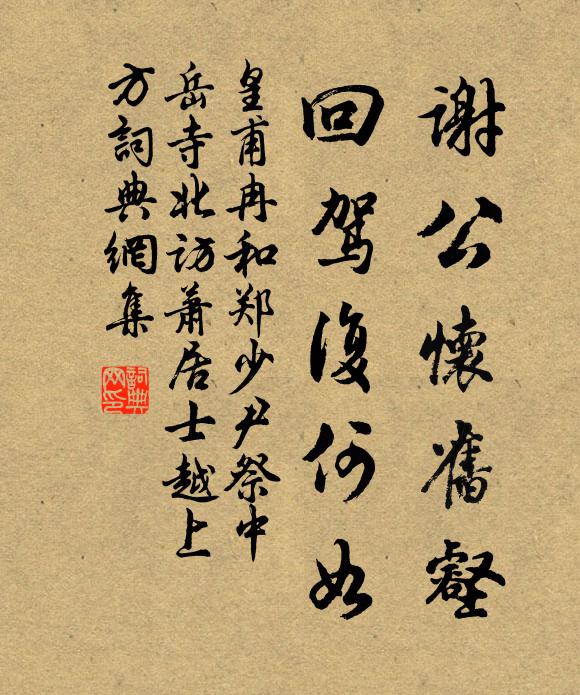 谢公懷舊壑
回驾復何如
皇甫冉和郑少尹祭中
岳寺北訪萧居士越上
方詞典網集
詞典
网印